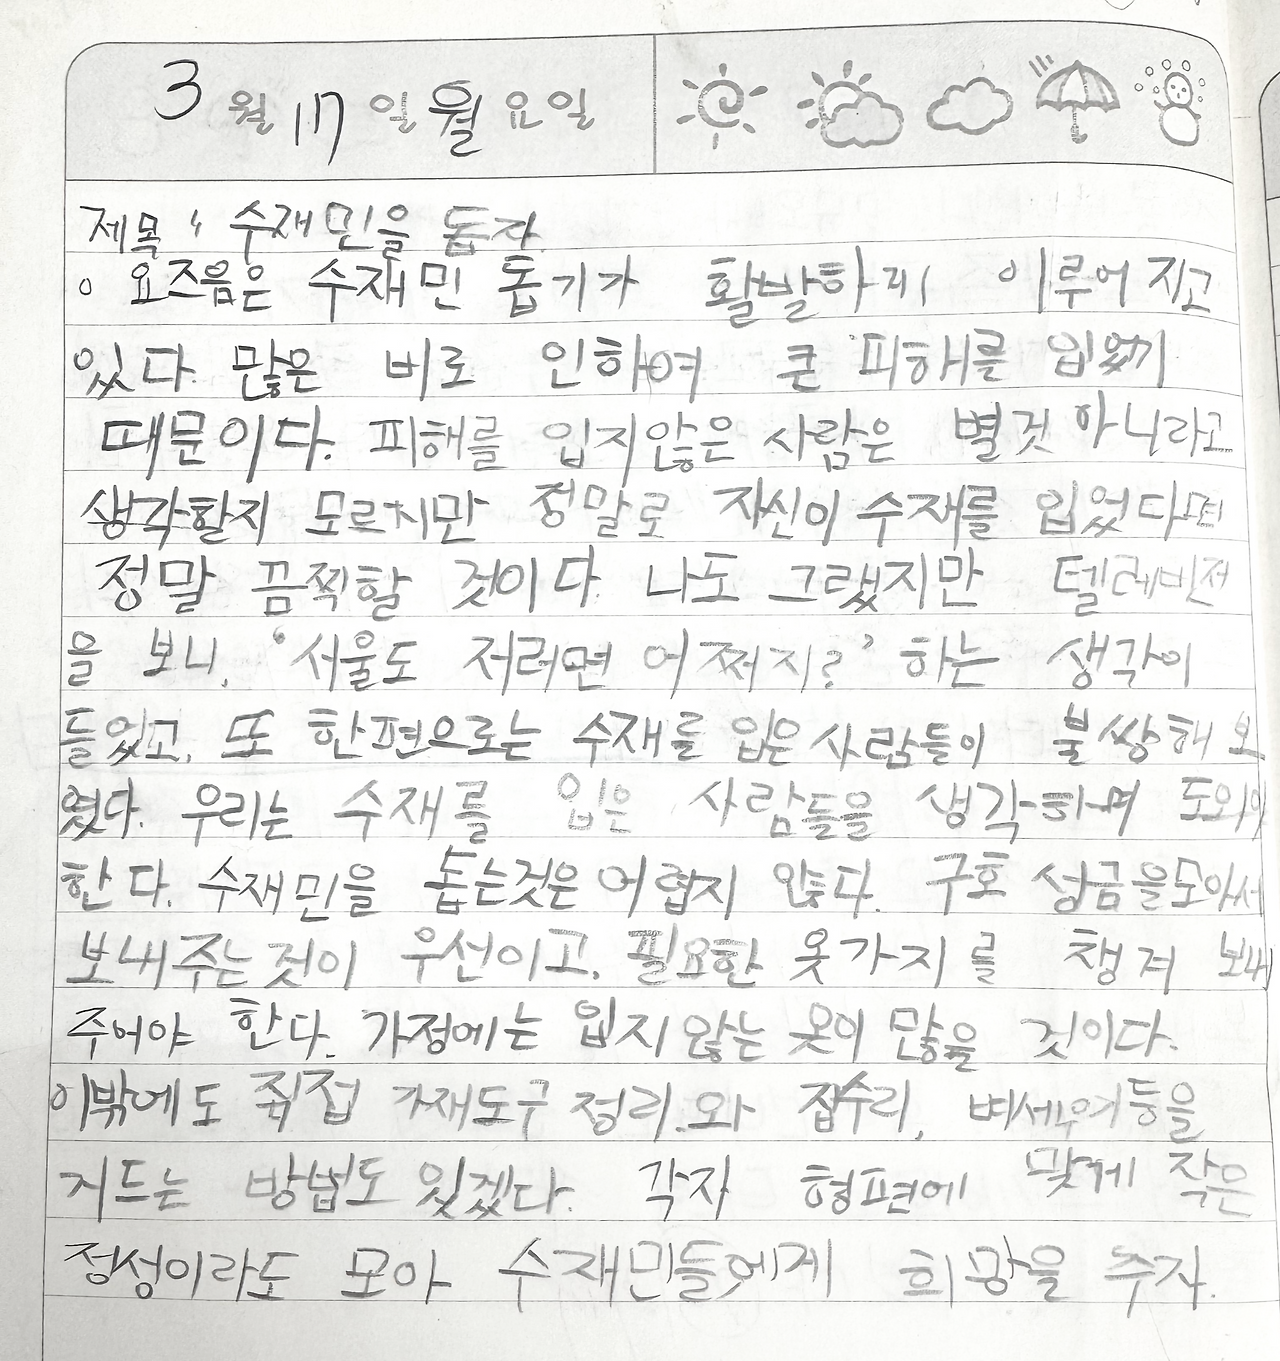 3 월 17 일 월 요일
제목 : 수재민을 돕자
요즈음은 수재민 돕기가 활발하게 이루어 지고
있다. 많은 비로 인하여 큰 피해를 입었기
때문이다. 피해를 입지않은 사람은 별것 아니라고
생각할지 모르지만 정말로 자신이 수재를 입었다면
정말 끔찍할 것이다. 나도 그랬지만 텔레비전
을 보니, '서울도 저러면 어쩌지?' 하는 생각이
들었고, 또 한편으로는 수재를 입은 사람들이 불쌍해 보
였다. 우리는 수재를 입은 사람들을 생각하며 도와야
한다. 수재민을 돕는것은 어렵지 않다. 구호 성금을모아서
보내주는것이 우선이고, 필요한 옷가지를 챙겨 보내
주어야 한다. 가정에는 입지않는 옷이 많을 것이다.
이밖에도 직접 가재도구 정리와 집수리, 벼세우기등을
거드는 방법도 있겠다. 각자 형편에 맞게 작은
정성이라도 모아 수재민들에게 희망을 주자.